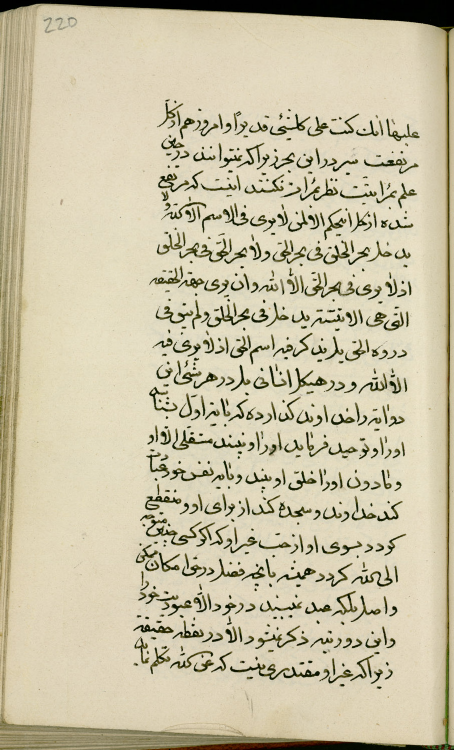 220
علیها انك كنت على كلشیئ قدیراً و امروز هم از كل
مرتفعت سیر در این بحر زیرا كه نتوانند در حین
علم بمرایت نظر بمرات نكنند اینست كه مرتفع
شده از كل این حكم الا لمن لا یرى فى الاسم الا الله ولا
یدخل بحر الخلق فى بحر الحق ولا بحر الحق فى بحر الخلق
اذ لا یرى فى بحر الحق الا الله و ان یرى جهة الحقیقه
التى هى الانیّته یدخل فى بحر الخلق ولم یبق فى
ذروه الحق یلیذكر فیه اسم الحق اذ لا یرى فیه
الا الله و در هیكل انسانى بل در هر شیئ این
دو ایه را خداوند گذارده كه بایه اول بشناسد
اورا و توحید فرماید اورا و نبیند مستقلى الا او
و مادون اورا خلق او بیند و بایه نفس خود عبادت
كند خداوند و سجده كند از براى او و منقطع
گردد بسوى او از حب غیر او كه اگر كسى چنین متوجه
الى الله گردد همیشه بانچه فضل در حق امكان ممكن
واصل بلكه ضد نبیند در خود الا عبودیت خود را
و این دو رتبه ذكر نمیشود الا در نقطه حقیقت
زیرا كه غیر او مقتدرى نیست كه عن الله تكلم نماید